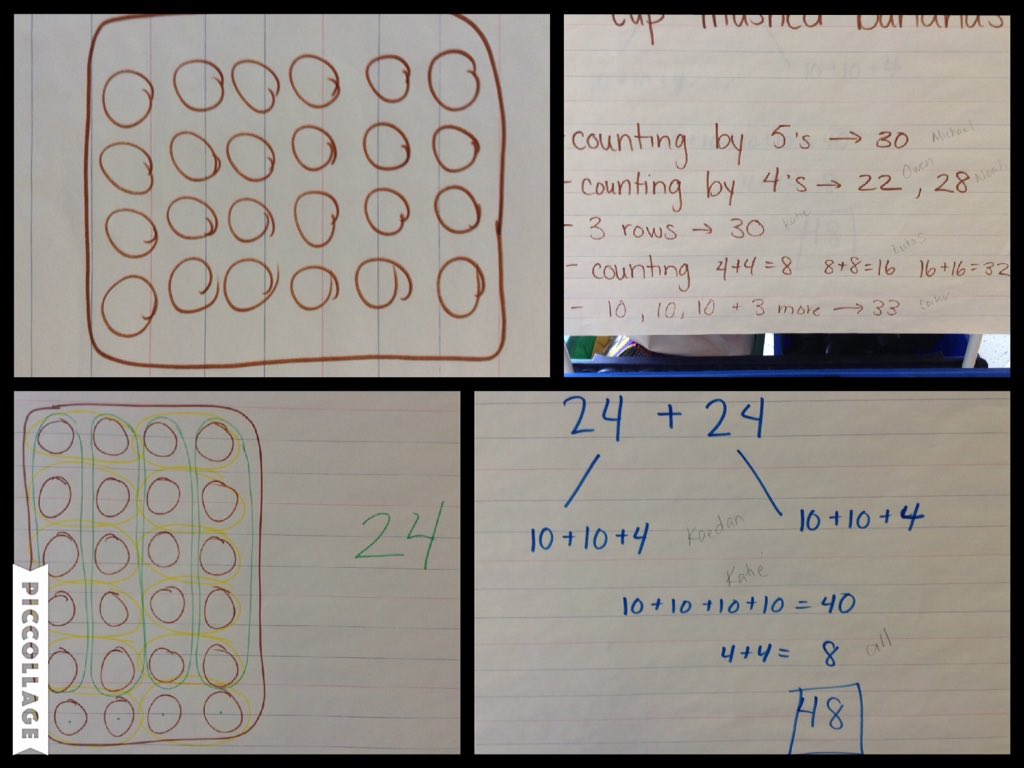 cup mashed bananas
- counting by 5's → 30 Michael
- counting by 4's → 22 Owen, 28 Noah
- 3 rows → 30 Katie
- counting 4+4=8 8+8=16 16+16=32 Lukas
- 10, 10, 10 + 3 more → 33
24
24 + 24
10+10+4 Kaedan 10+10+4
Katie
10+10+10+10 = 40
4+4= 8 all
48
PICCOLLAGE